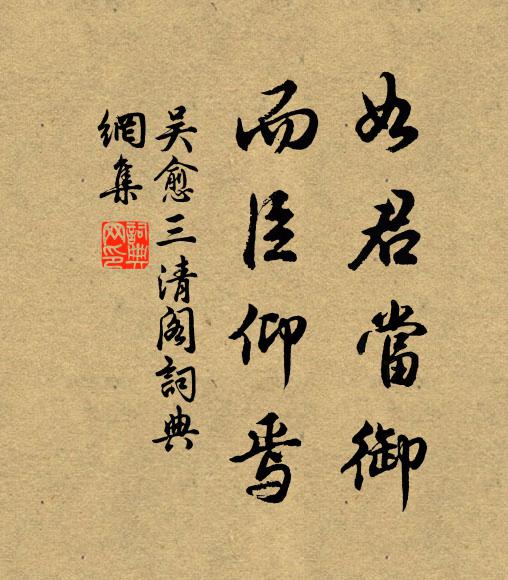 如君當御
而臣仰焉
吴愈三清阁詞典
網集
詞典
网印